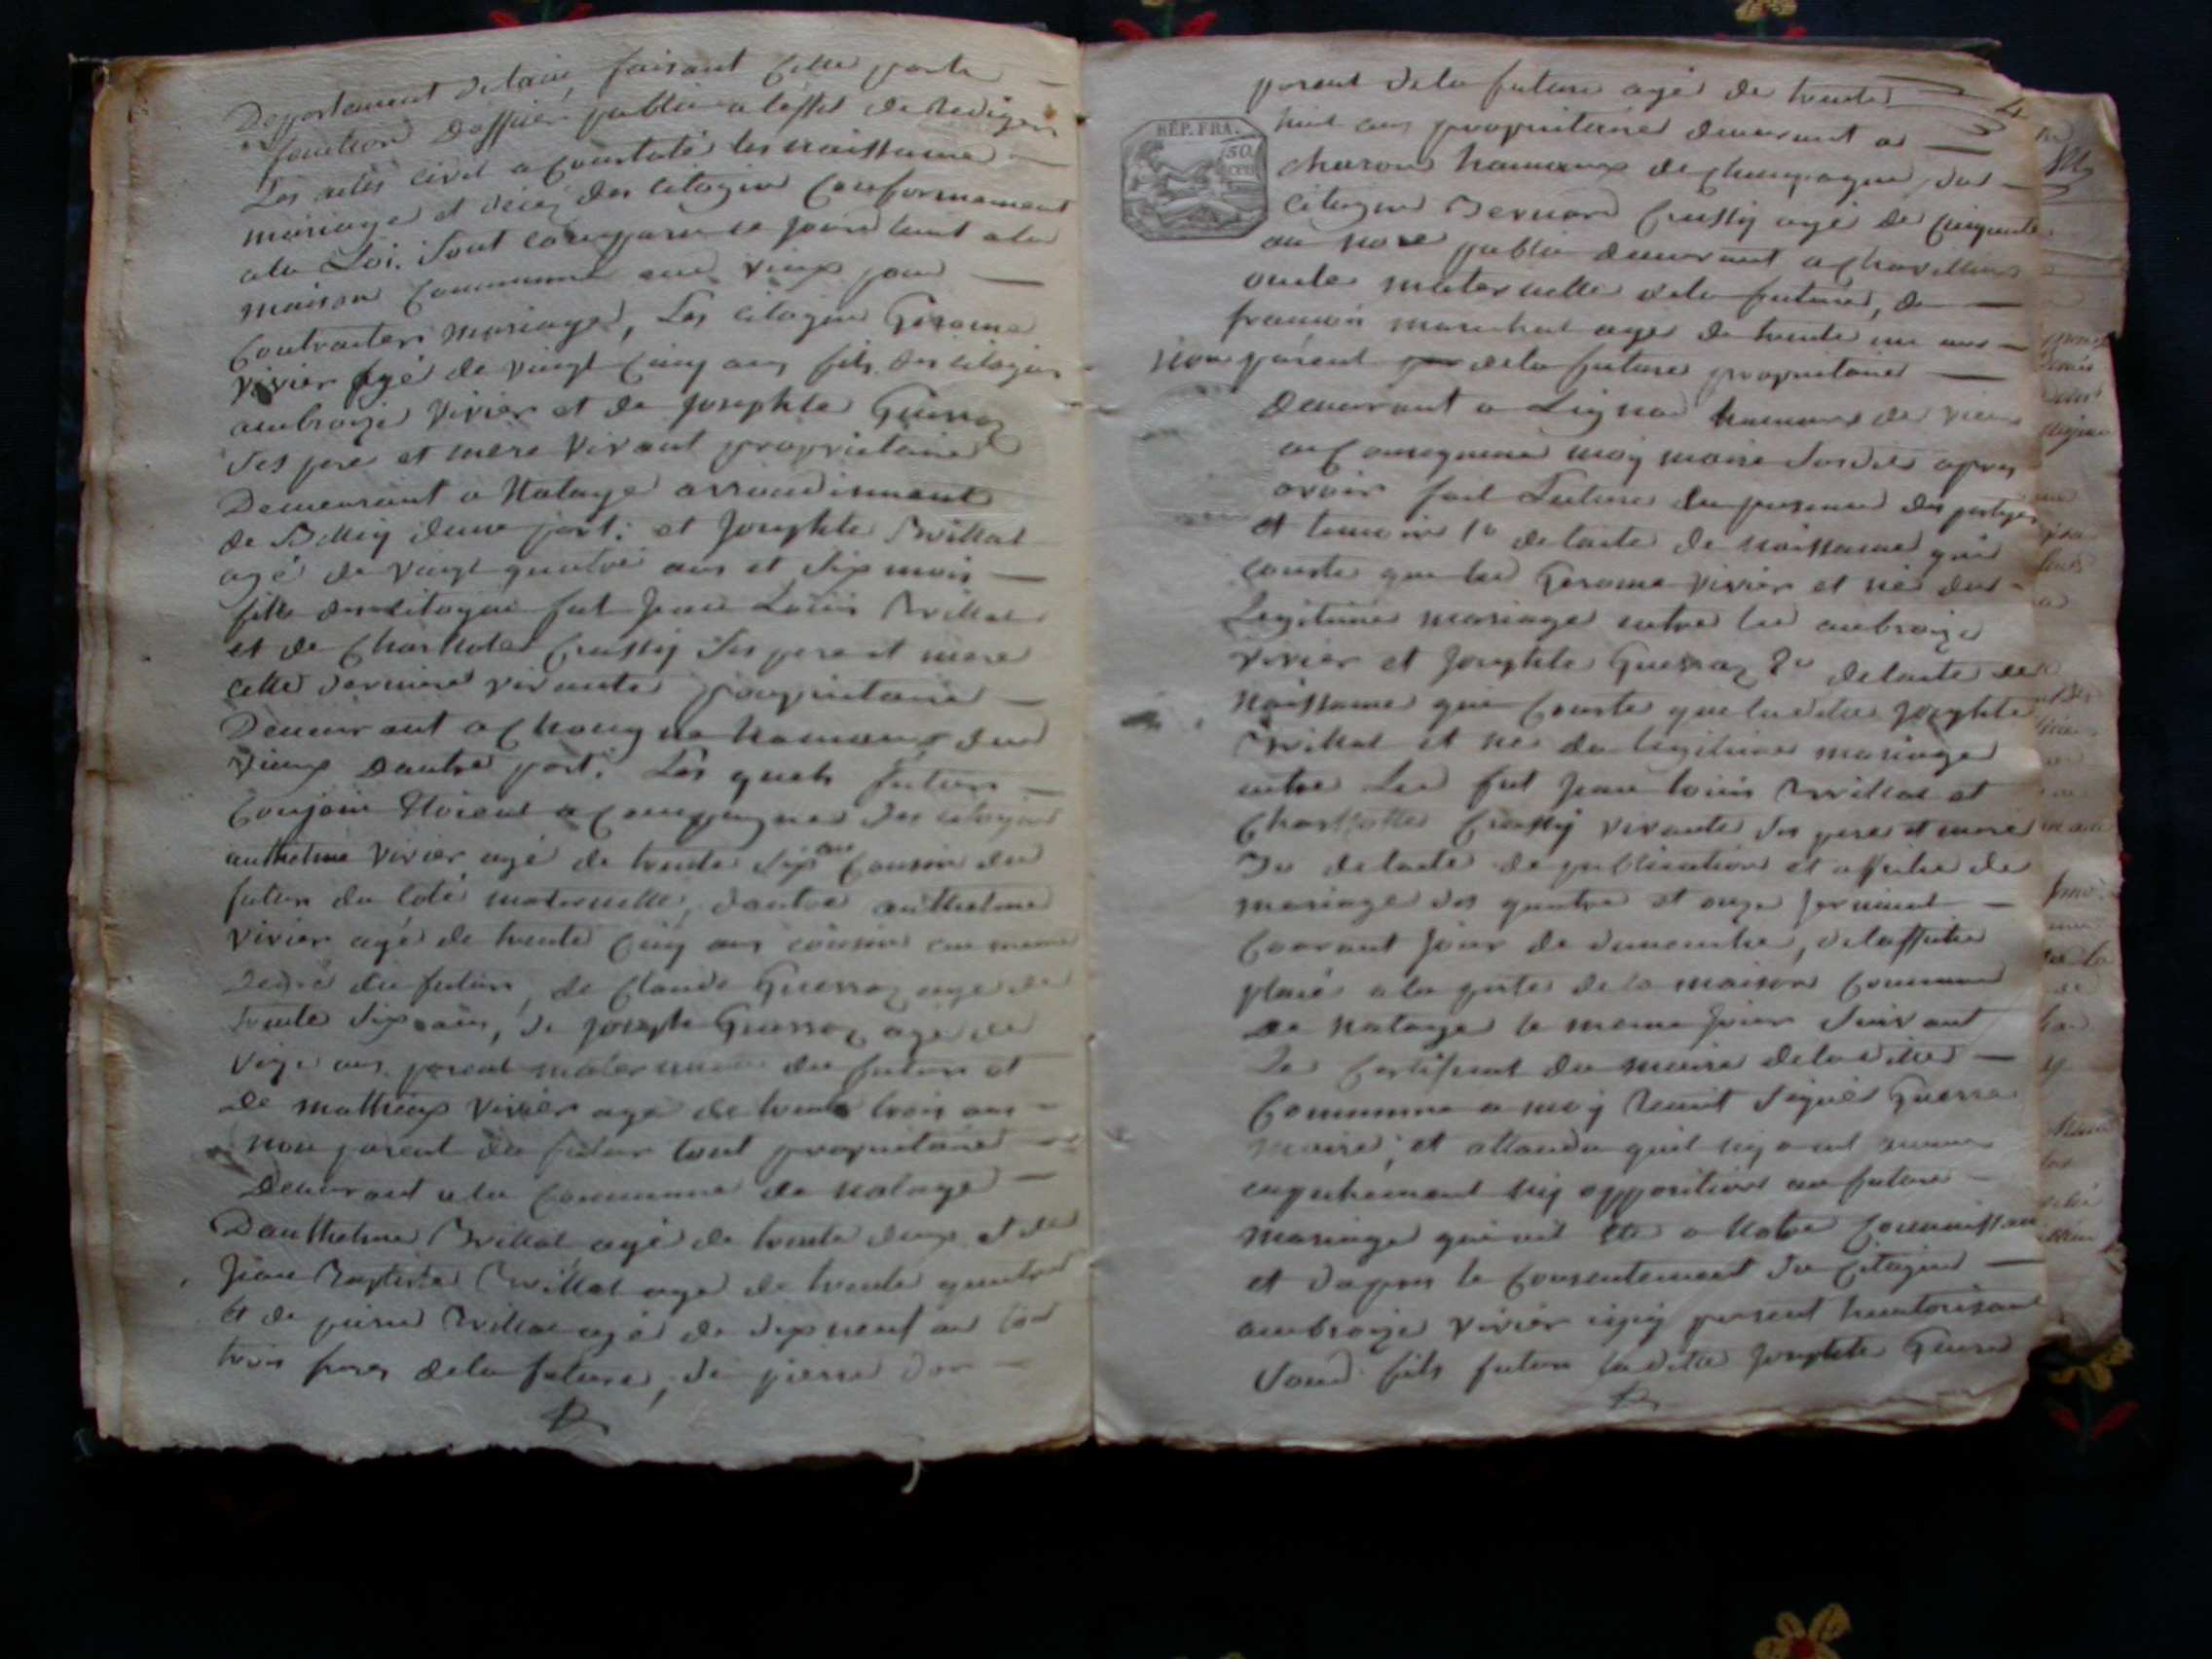 Departement de lain, faisant cette partie
fonction Dofficier public a leffet de Rediger
Les actes civil a Constaté les naissance
mariage et décez des Citoyins Conformement
ala Loi. Sont comparu ce jourd huit ala
maison Commune de vieux pour
Contracter mariage, Les Citoyen Gerome
Vivier agé de vingt Cinq ans fils des citoyin
ambroize Vivier et de Josephte Guerraz
Ses pere et mere Vivant propriétaire
Demeurant a Natage arrondissement
de Belley dune part: et Josephte Brillat
agé de vingt quatre ans et Six mois
fille des citoyen fut Jean Louis Brillat
et de Charlotte Crussy Ses pere et mere
cette derniere vivante propriétaire
Demeurant a hameaux de
vieux Dautre part. Les quels futurs
Conjoin Etoient acCompagnes des citoyens
anthelme Vivier agé de trente Six ans Cousin du
futur du coté maternelle, dautre anthelme
Vivier agé de trente Cinq ans cousin au meme
Degré du futur, de Claude Guerraz agé de
trente Six ans, de Joseph Guerraz agé de
ans parent maternelle du futur et
de mathieux Vivier agé de trente trois ans
non parent du futur tout propriétaire
Demeurant a la Commune de natage
Danthelme Brillat agé de trente deux et de
Jean Baptiste Brillat agé de trente quatre
et de pierre Brillat agé de dix neuf ans
trois freres dela future, de pierre
parent dela future agé de trente
4
huit ans propriétaire demeurant a
RÉP. FRA.
50
CEN
hameaux de champagne, du
citoyen Bernard Crussy agé de Cinquante
public demeurant a
oncle maternelle dela future, de
francois marechal agé de trente un ans
Non parent dela future propriétaire
Demeurant a hameaux de vieux
moy maire Susdit apres
avoir fait Lecture En presence des parties
et temoin 1o delacte de naissance qui
Conste que le Gerome Vivier et né du
Legitime mariage entre le ambroize
vivier et Josephte Guerraz 2o delacte de
naissance qui Conste que ladite Josephte
Brillat et né du legitime mariage
entre Le fut Jean Louis Brillat et
Charlotte Crussy vivante Ses pere et mere
3o delacte de publication et affiche de
mariage des quatre et onze
Courant Jour de dimanche, delaffiche
placé a la porte de la maison Commune
de natage le meme Jour Suivant
Le Certificat du maire deladitte
Commune a moy Remit Signé Guerra
maire; et attandu quil ny a eut aucun
empechement ny opposition au future
mariage qui ait Eté a Notre Connoissance
et dapres le Consentement du Citoyen
ambroize Vivier icy present
Sond. fils futur ladite Josephte Guerraz